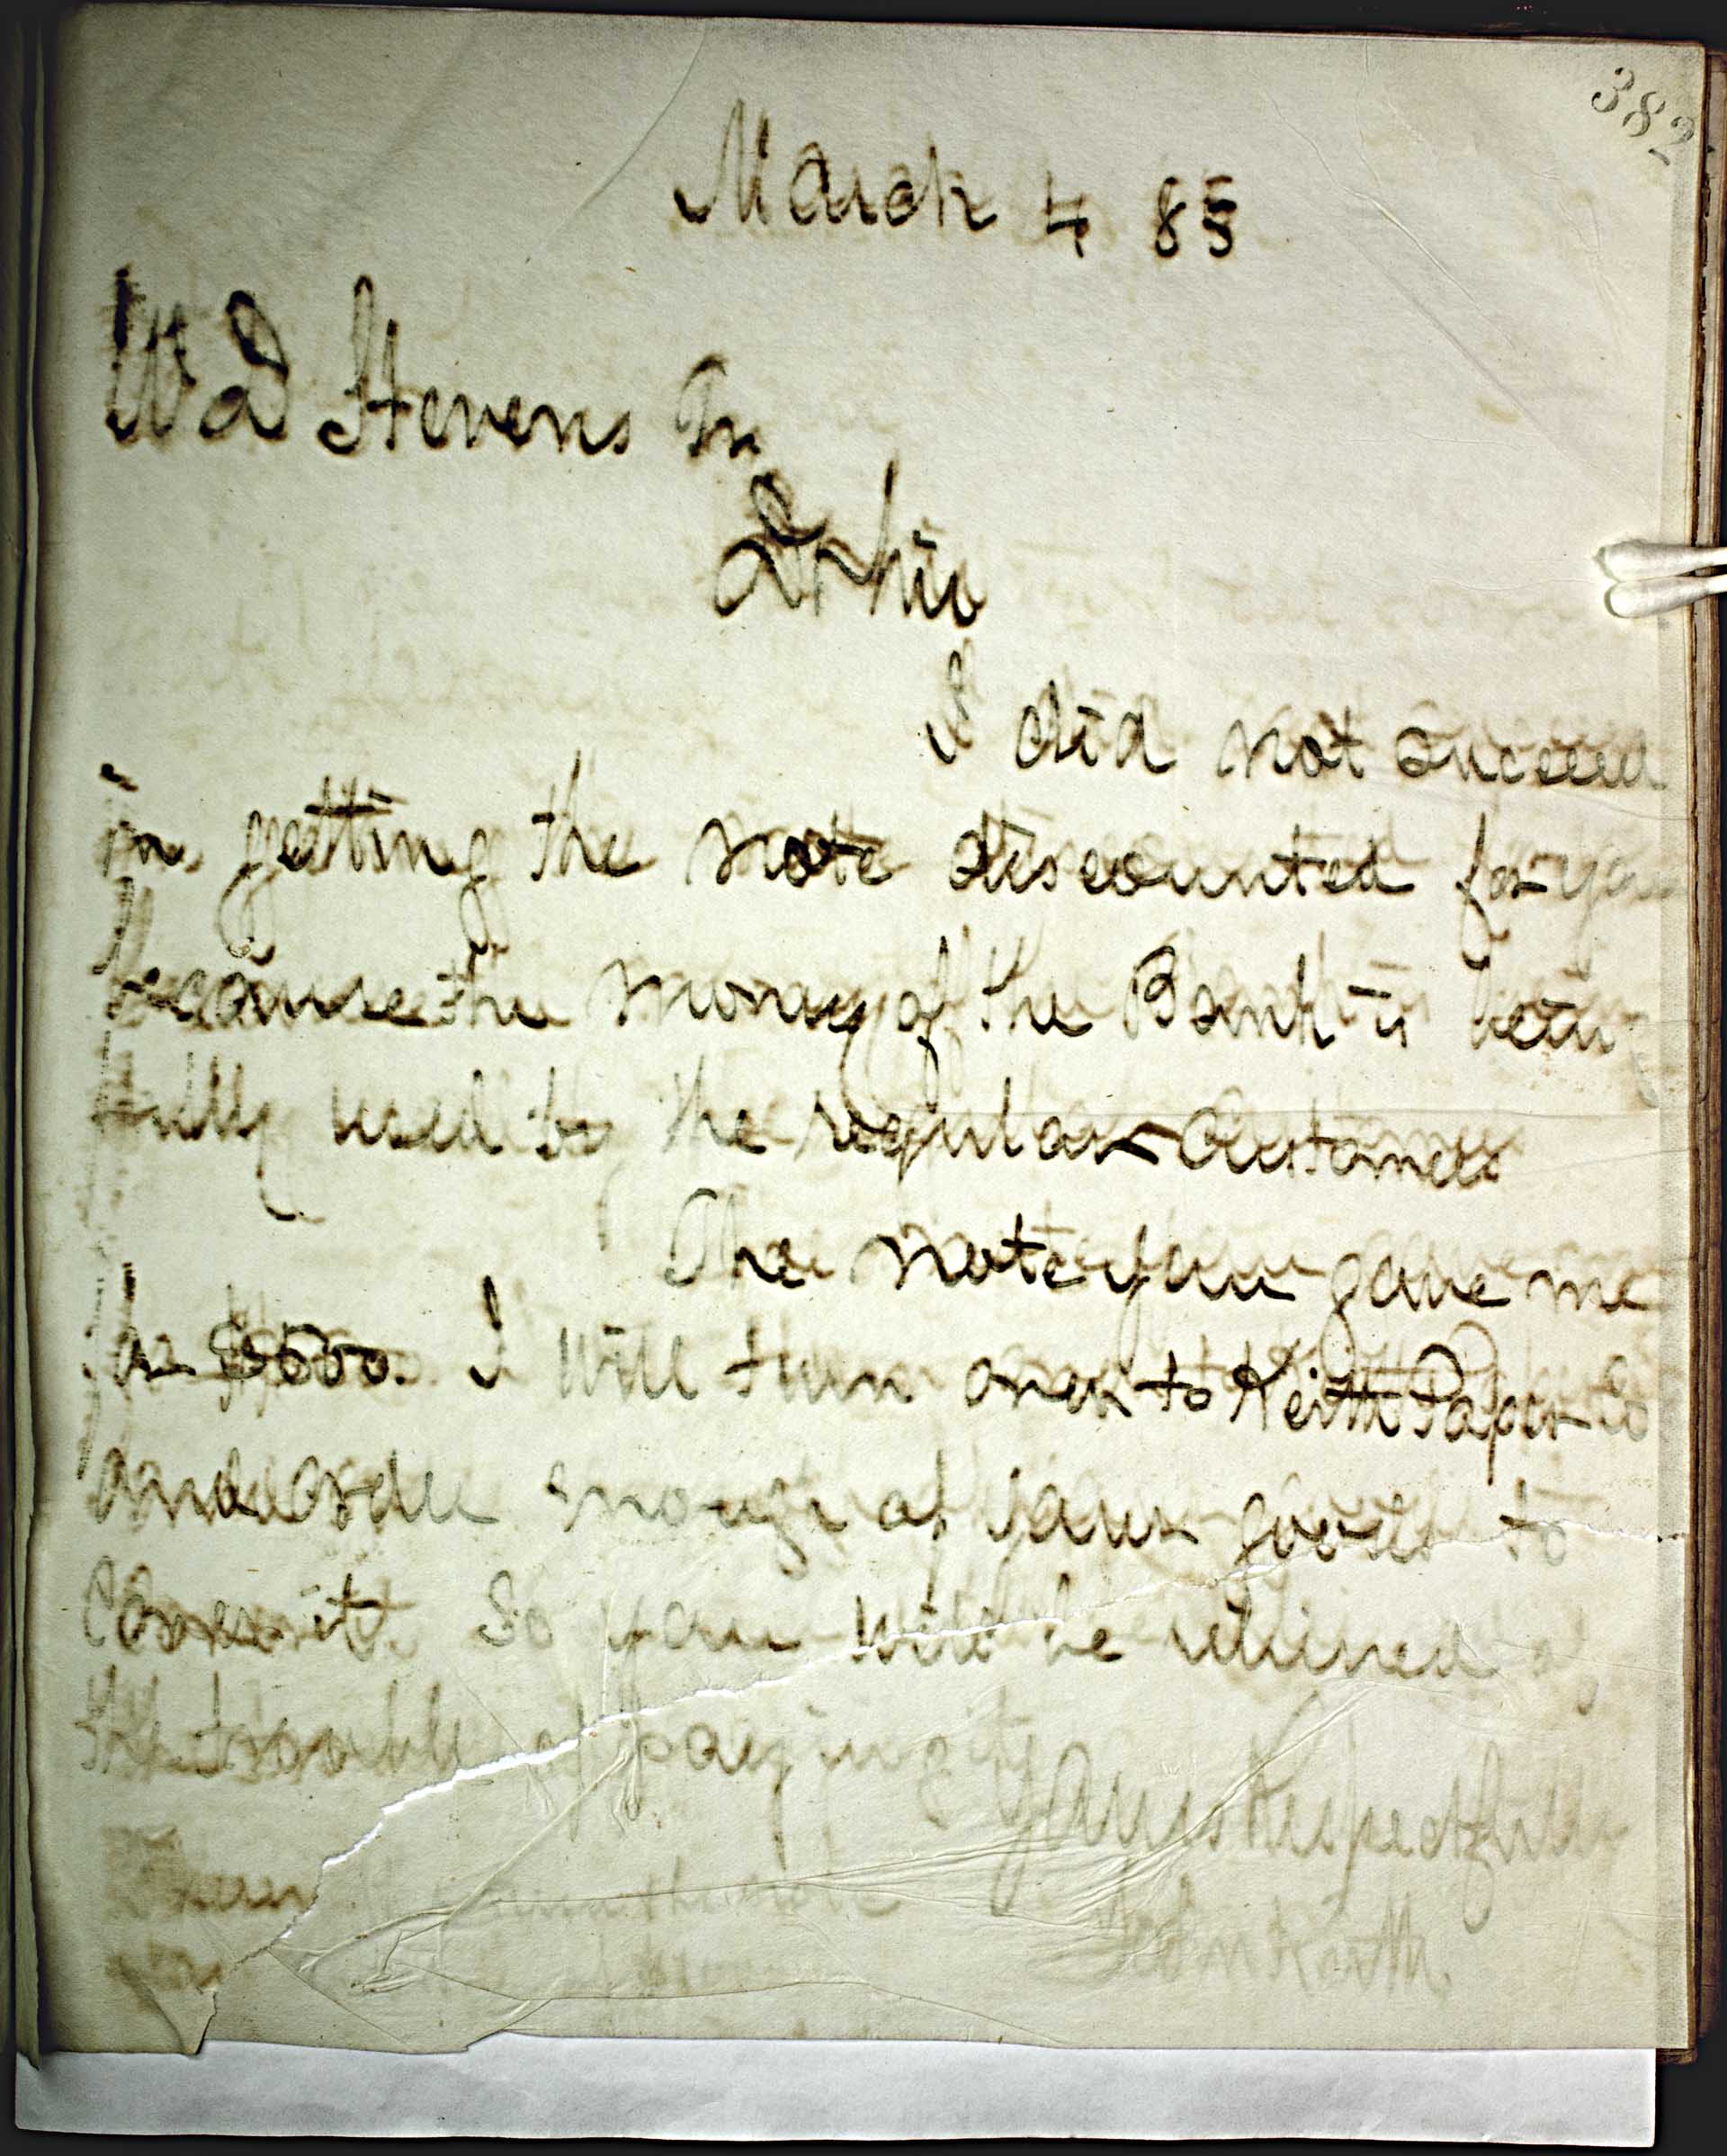 382
March 4 85
W D Stevens Jr
Dr Sir
I did not succeed
in getting the note discounted for you
because the money of the Bank is being
fully used by the regular customers
The note you gave me
for $500. I will turn over to Keith Paper Co
and order enough of your goods to
cover it. So you will be relieved of
the trouble of paying it
Yours Respectfully
John Keith